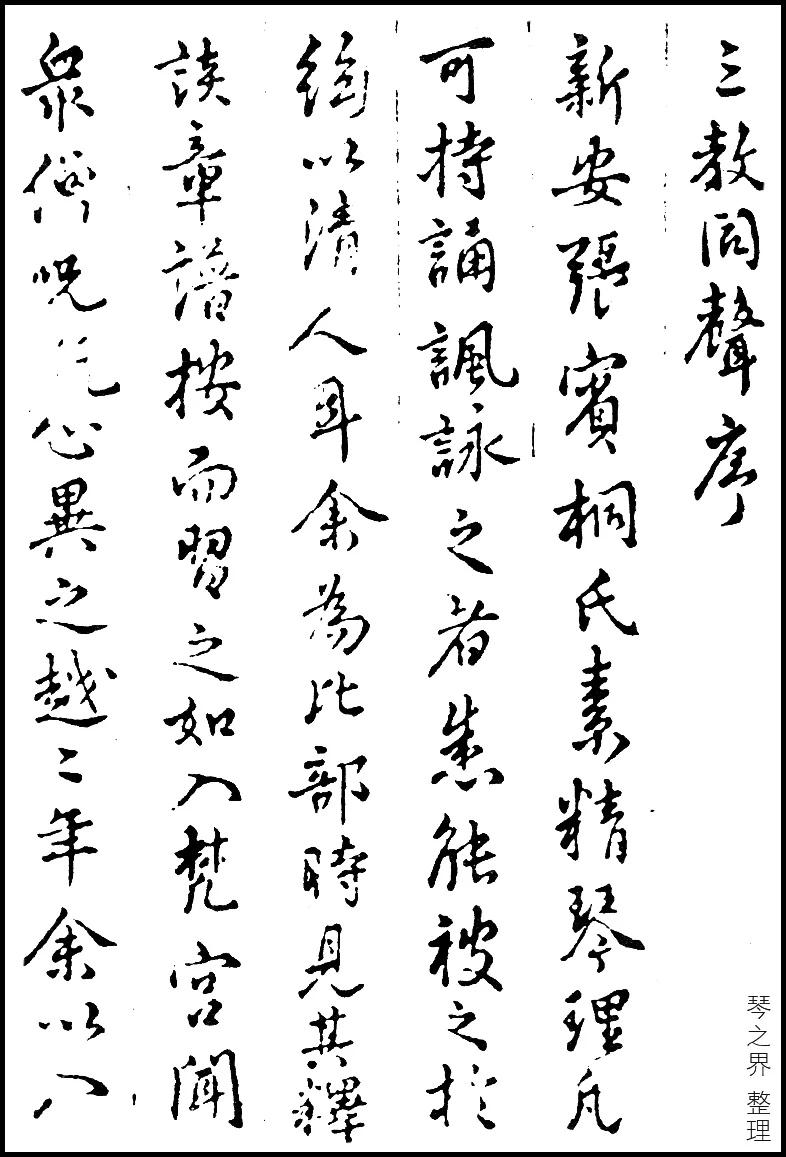 三教同聲序
新安張賓桐氏素精琴理凡
可持誦諷詠之者悉能被之於
絃以清人耳余為比部時見其釋
談章譜按而習之如入梵宮聞
眾僧咒心異之越二年余以入
琴之界 整理